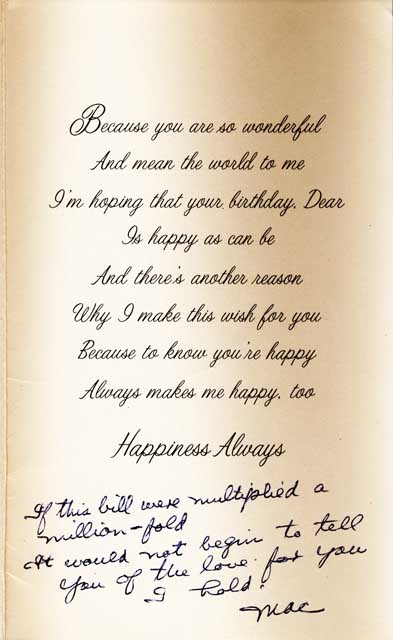 Because you are so wonderful
And mean the world to me
I'm hoping that your birthday, Dear
Is happy as can be
And there's another reason
Why I make this wish for you
Because to know you're happy
Always makes me happy, too
Happiness Always
If this bill were multiplied a
million-fold
It would not begin to tell
you of the love for you
I hold.
Mac